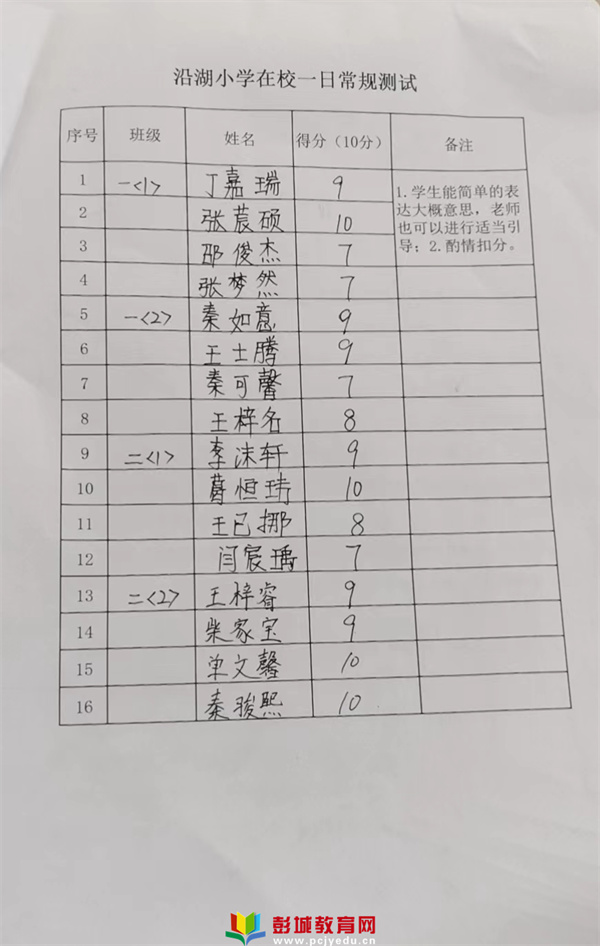 沿湖小学在校一日常规测试
序号 班级 姓名 得分（10分） 备注
1 一<1> 丁嘉瑞 9
1.学生能简单的表
达大概意思，老师
也可以进行适当引
导；2.酌情扣分。
2 张莀硕 10
3 邵俊杰 7
4 张梦然 7
5 一<2> 秦如意 9
6 王士腾 9
7 秦可馨 7
8 王梓名 8
9 二<1> 李沫轩 9
10 葛恒玮 10
11 王已挪 8
12 闫宸瑀 7
13 二<2> 王梓睿 9
14 柴家宝 9
15 单文馨 10
16 秦骏熙 10
彭城教育网
www.pcjyedu.cn